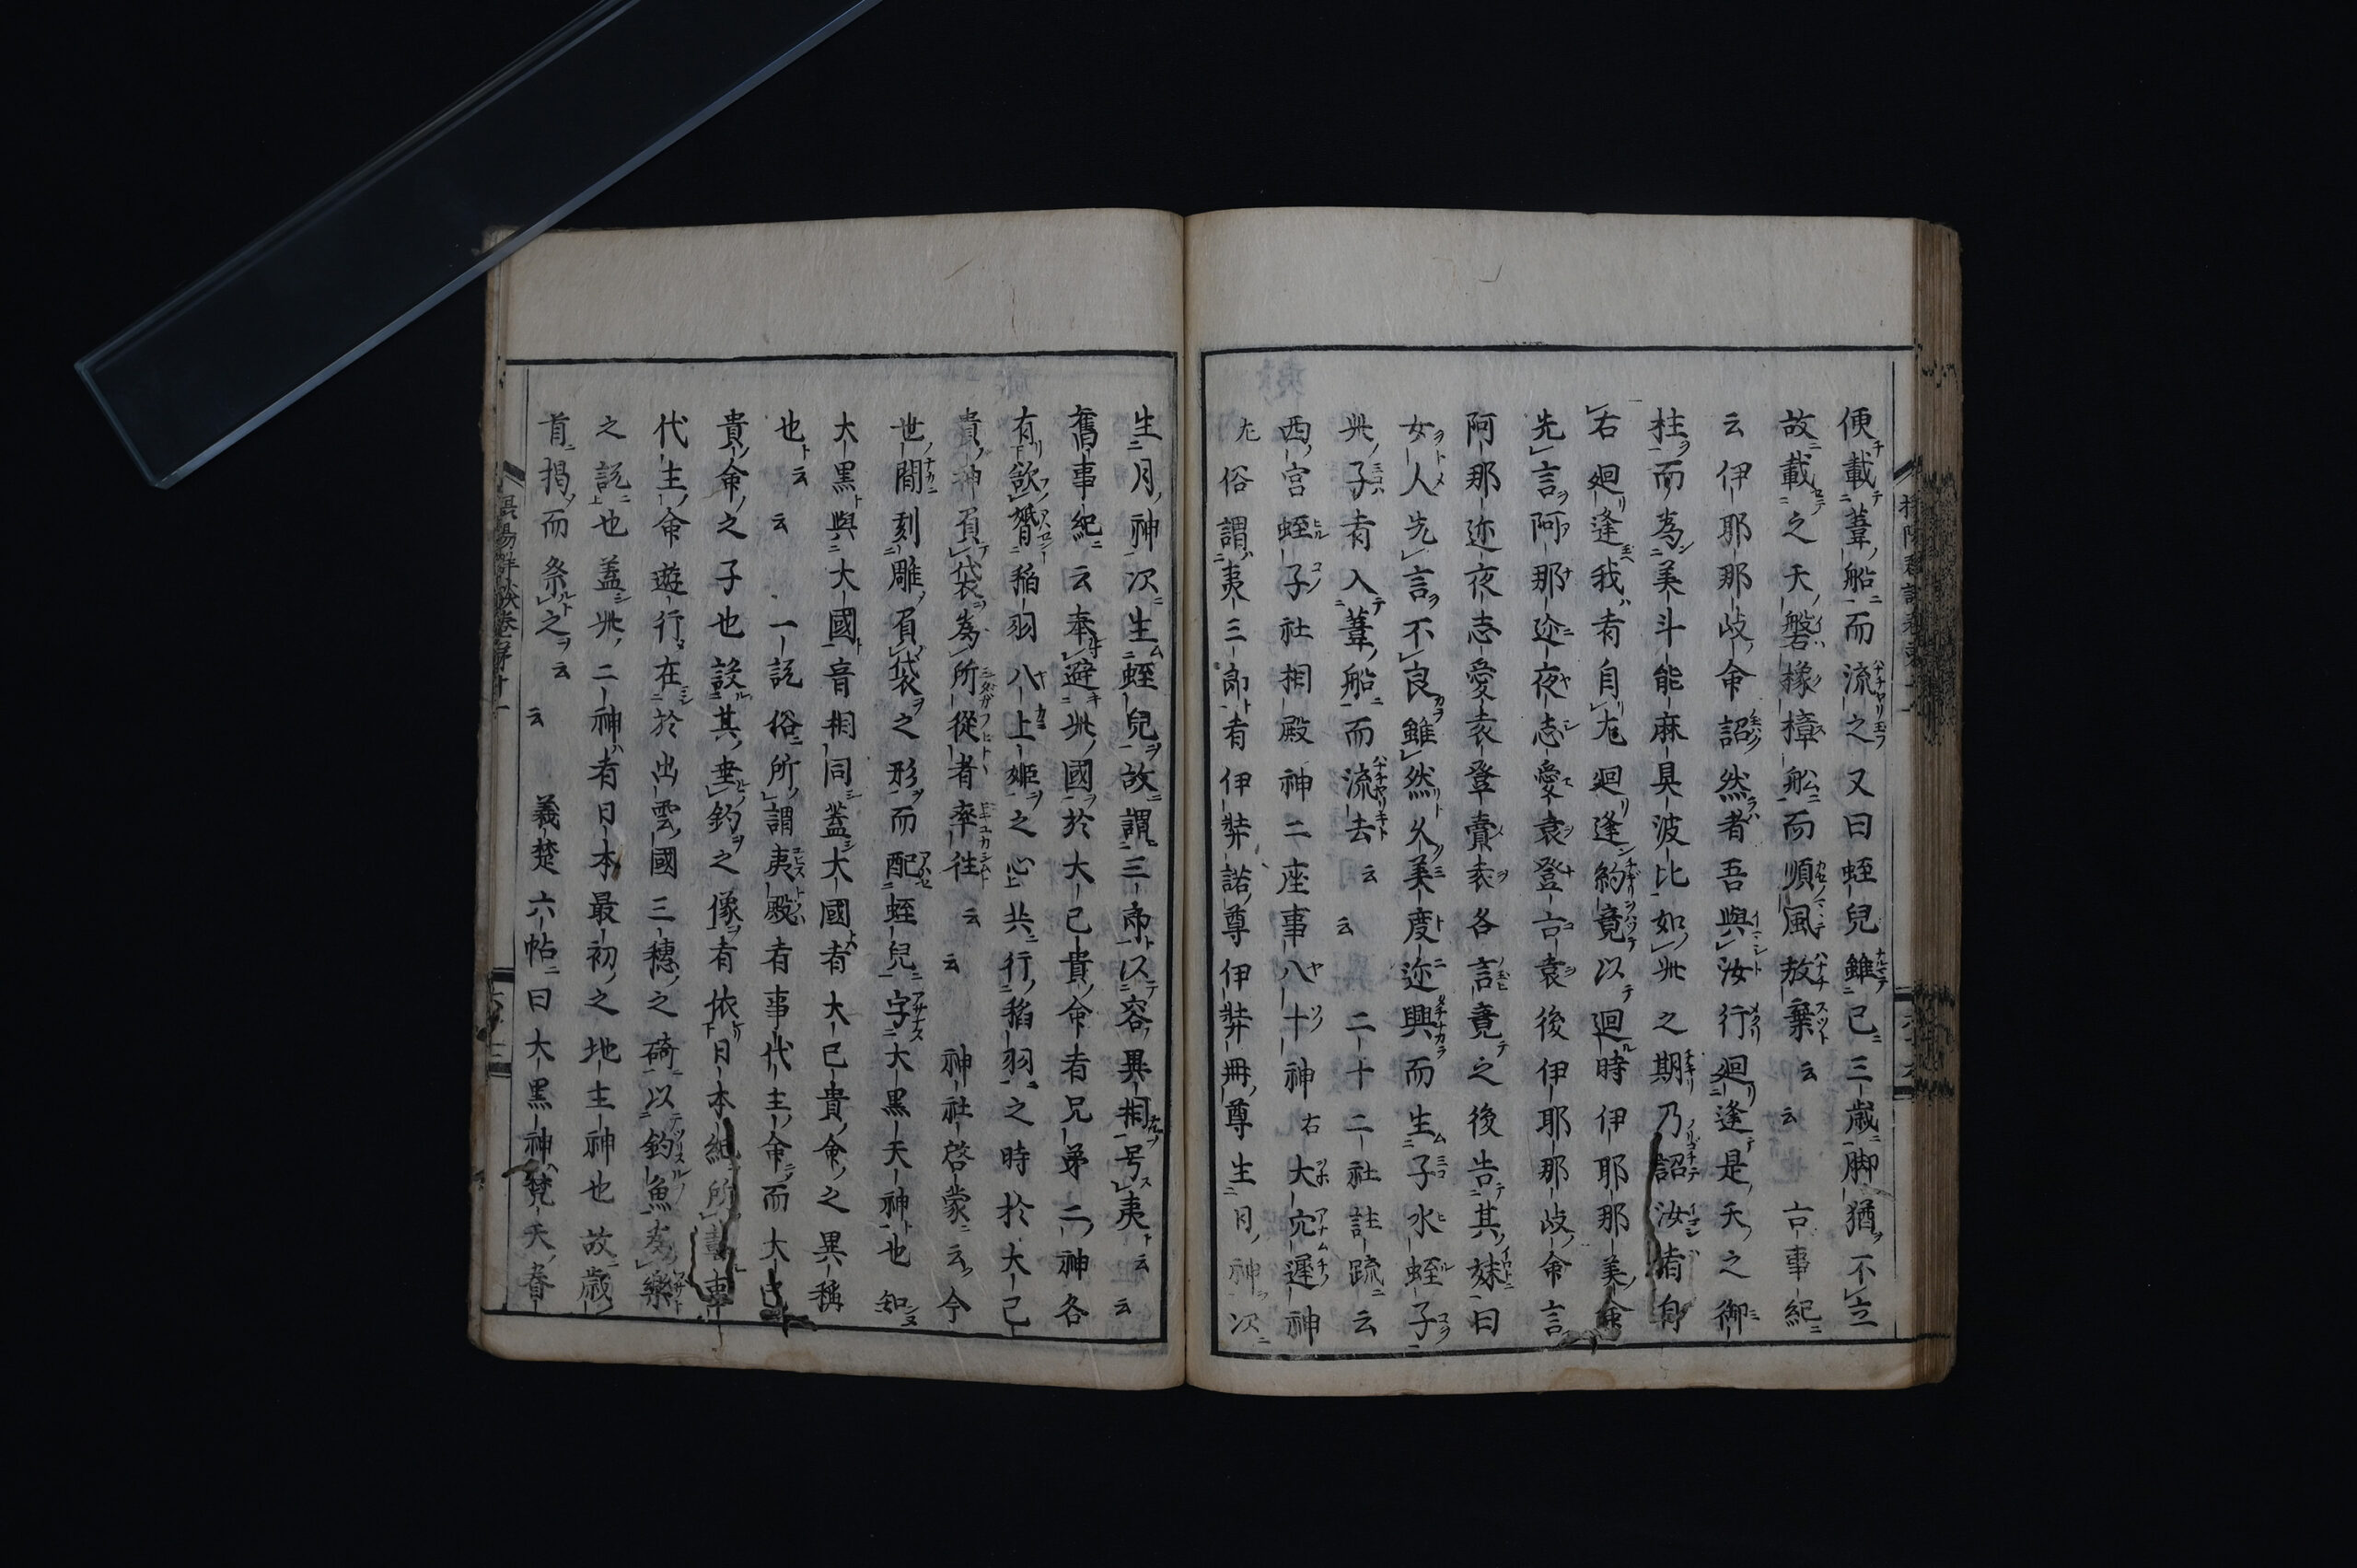 便載葦船而流之又曰蛭兒雖已三歳脚猶不立
故載之天磐橡樟船而順風放棄云云古事紀
云伊耶那岐命詔然者吾與汝行廻逢是天之御
柱而為美斗能麻具波比如此之期乃詔汝者自
右廻逢我者自左廻逢約竟以廻時伊耶那美命
先言阿那迩夜志愛袁登古袁後伊耶那岐命言
阿那迩夜志愛袁登賣袁各言竟之後告其妹曰
女人先言不良雖然久美度迩興而生子水蛭子
此子者入葦船而流去云云二十二社註疏云
西宮蛭子社相殿神二座事八十神右大穴遲神
左俗謂夷三郎者伊弉諾尊伊弉冊尊生日神次
生月神次生蛭兒故謂三郎以容異相号夷云云
舊事紀云奉避此國於大己貴命者兄弟二神各
有欲婚稲羽八上姫之心共行稲羽之時於大己
貴神負袋為所從者率往云云神社啓蒙云今
世間刻雕負袋之形而配蛭兒字大黒天神也知
大黒與大國音相同蓋大國者大己貴命之異稱
也云云一説俗所謂夷殿者事代主命而大己
貴命之子也設其垂釣之像有依日本紀所書事
代主命遊行在於出雲國三穗之碕以釣魚為樂
之説也蓋此二神者日本最初之地主神也故歳
首揭而祭之云云義楚六帖曰大黒神梵天眷